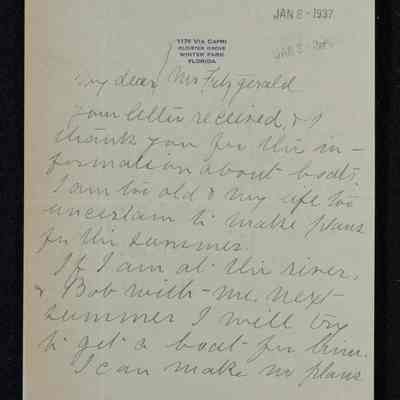 JAN 8 - 1937
1179 VIA CAPRI
CLOISTER GROVE
WINTER PARK
FLORIDA
My dear Mr Fitzgerald
Your letter received, & I
thank you for the in-
formation about boats.
I am too old & my life too
uncertain to make plans
for the summer.
If I am at the river,
& Bob with me next
summer I will try
to get a boat for him.
I can make no plans